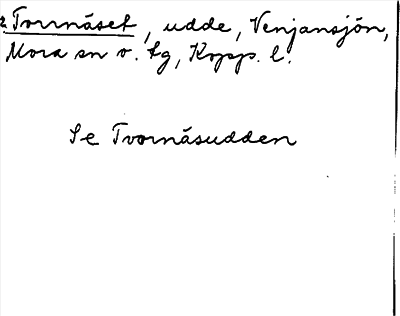 2. Tvornäset, udde, Venjansjön,
Mora sn o. tg, Kopp. l.
Se Tvornäsudden